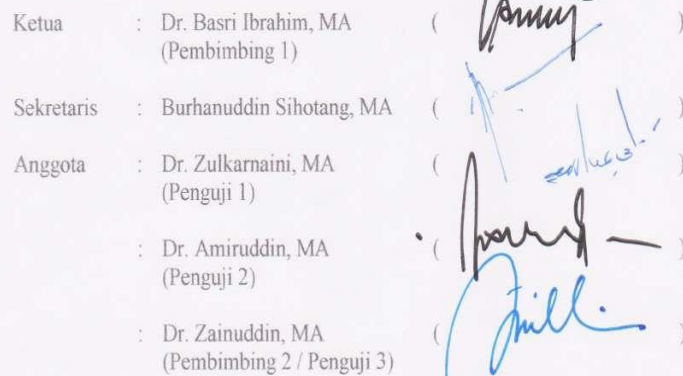 Ketua : Dr. Basri Ibrahim, MA ( )
(Pembimbing 1)
Sekretaris : Burhanuddin Sihotang, MA ( )
Anggota : Dr. Zulkarnaini, MA ( )
(Penguji 1)
: Dr. Amiruddin, MA ( )
(Penguji 2)
: Dr. Zainuddin, MA ( )
(Pembimbing 2 / Penguji 3)